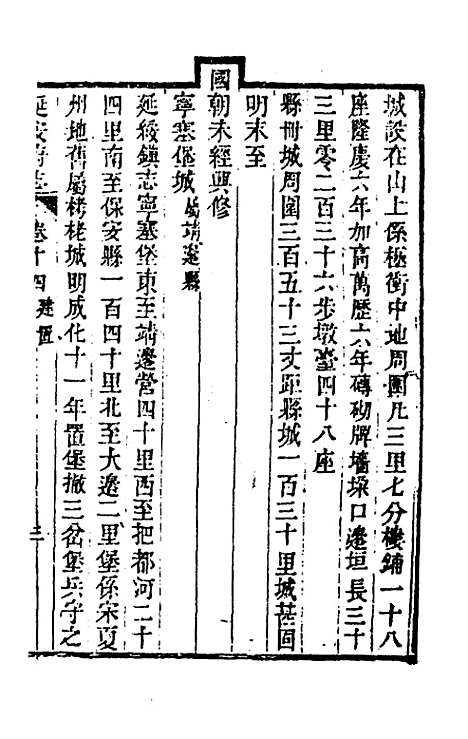 城設在山上係極衝中地周圍凡三里七分樓鋪一十八
座隆慶六年加高萬歷六年磚砌牌墻垜口邊垣長三十
三里零二百三十六步墩臺四十八座
縣冊城周圍三百五十三丈距縣城一百三十里城甚固
明末至
國朝未經興修
寧塞堡城屬靖邊縣
延綏鎮志寧塞堡東至靖邊營四十里西至把都河二十
四里南至保安縣一百四十里北至大邊二里堡係宋夏
州地舊屬栲栳城明成化十一年置堡撤三岔堡兵守之
延安府志 卷十四 建置 三